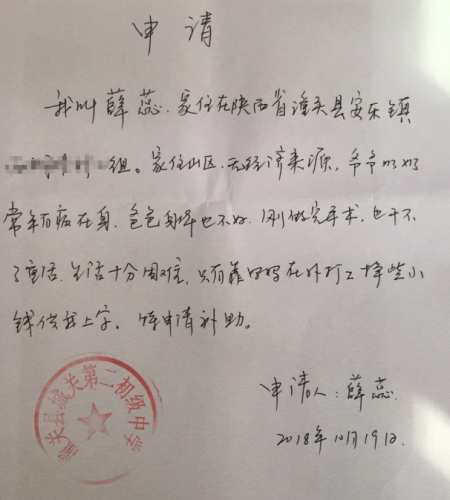 申请
我叫薛蕊.家住在陕西省潼关县安乐镇
组。家住山区.无经济来源,爷爷奶奶
常年有病在身.爸爸身体也不好.刚做完手术,也干不
了重活.生活十分困难.只有靠妈妈在外打工挣些小
钱供我上学。特申请补助。
申请人:薛蕊.
2018年10月19日.
潼关县城关第二初级中学